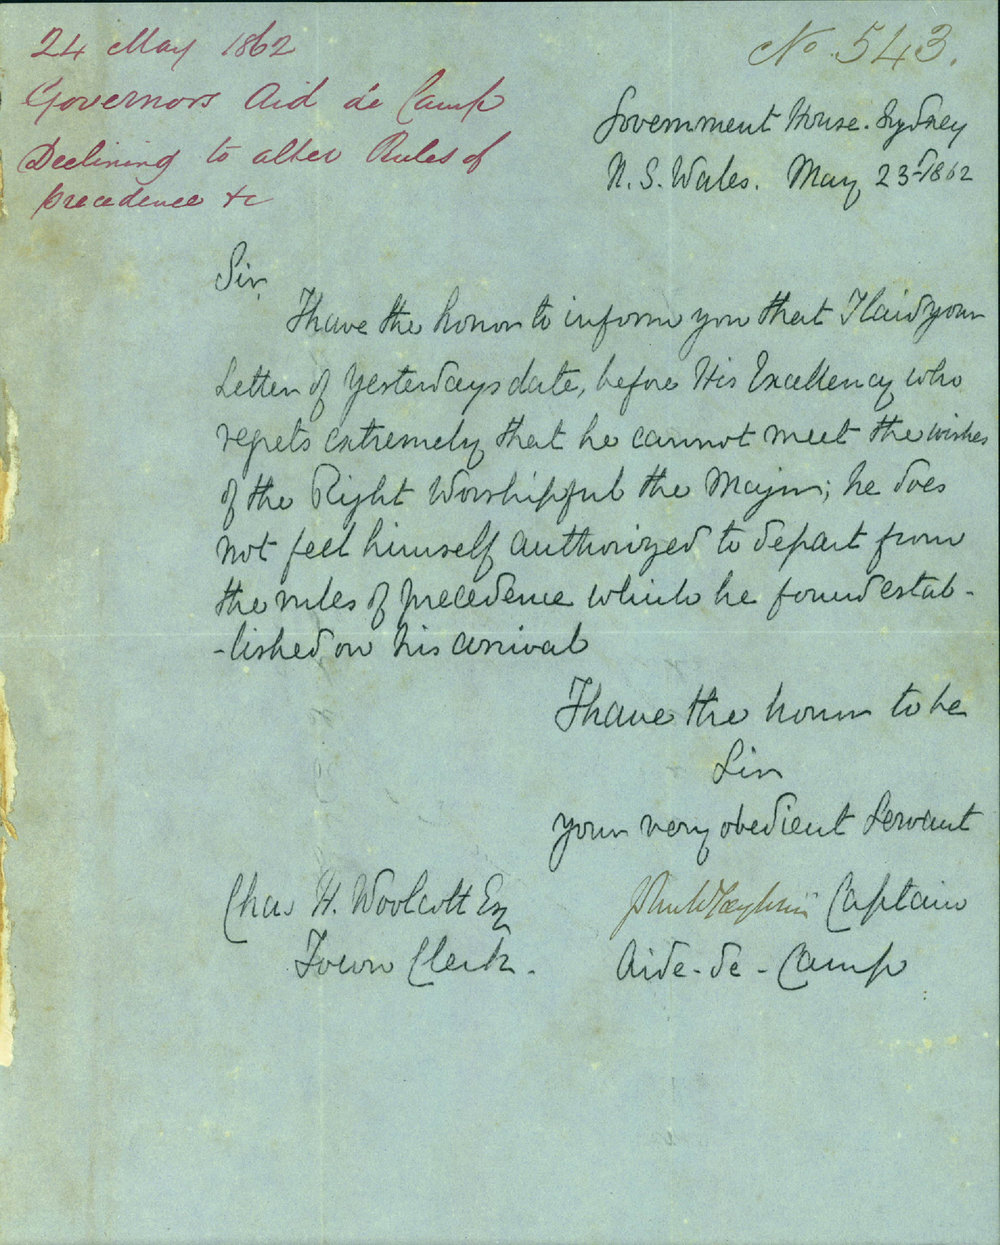 24 May 1862
Governors Aid de Camp
Declining to alter Rules of
precedence &c
No. 543.
Government House. Sydney
N. S. Wales. May 23d 1862
Sir,
I have the honor to inform you that I laid your
Letter of Yesterdays date, before His Excellency who
regrets extremely that he cannot meet the wishes
of the Right Worshipful the Mayor; he does
not feel himself authorized to depart from
the rules of precedence which he found estab-
-lished on his arrival
I have the honor to be
Sir
your very obedient Servant
Captain
Aide-de-Camp
Chas H. Woolcott Esq
Town Clerk.